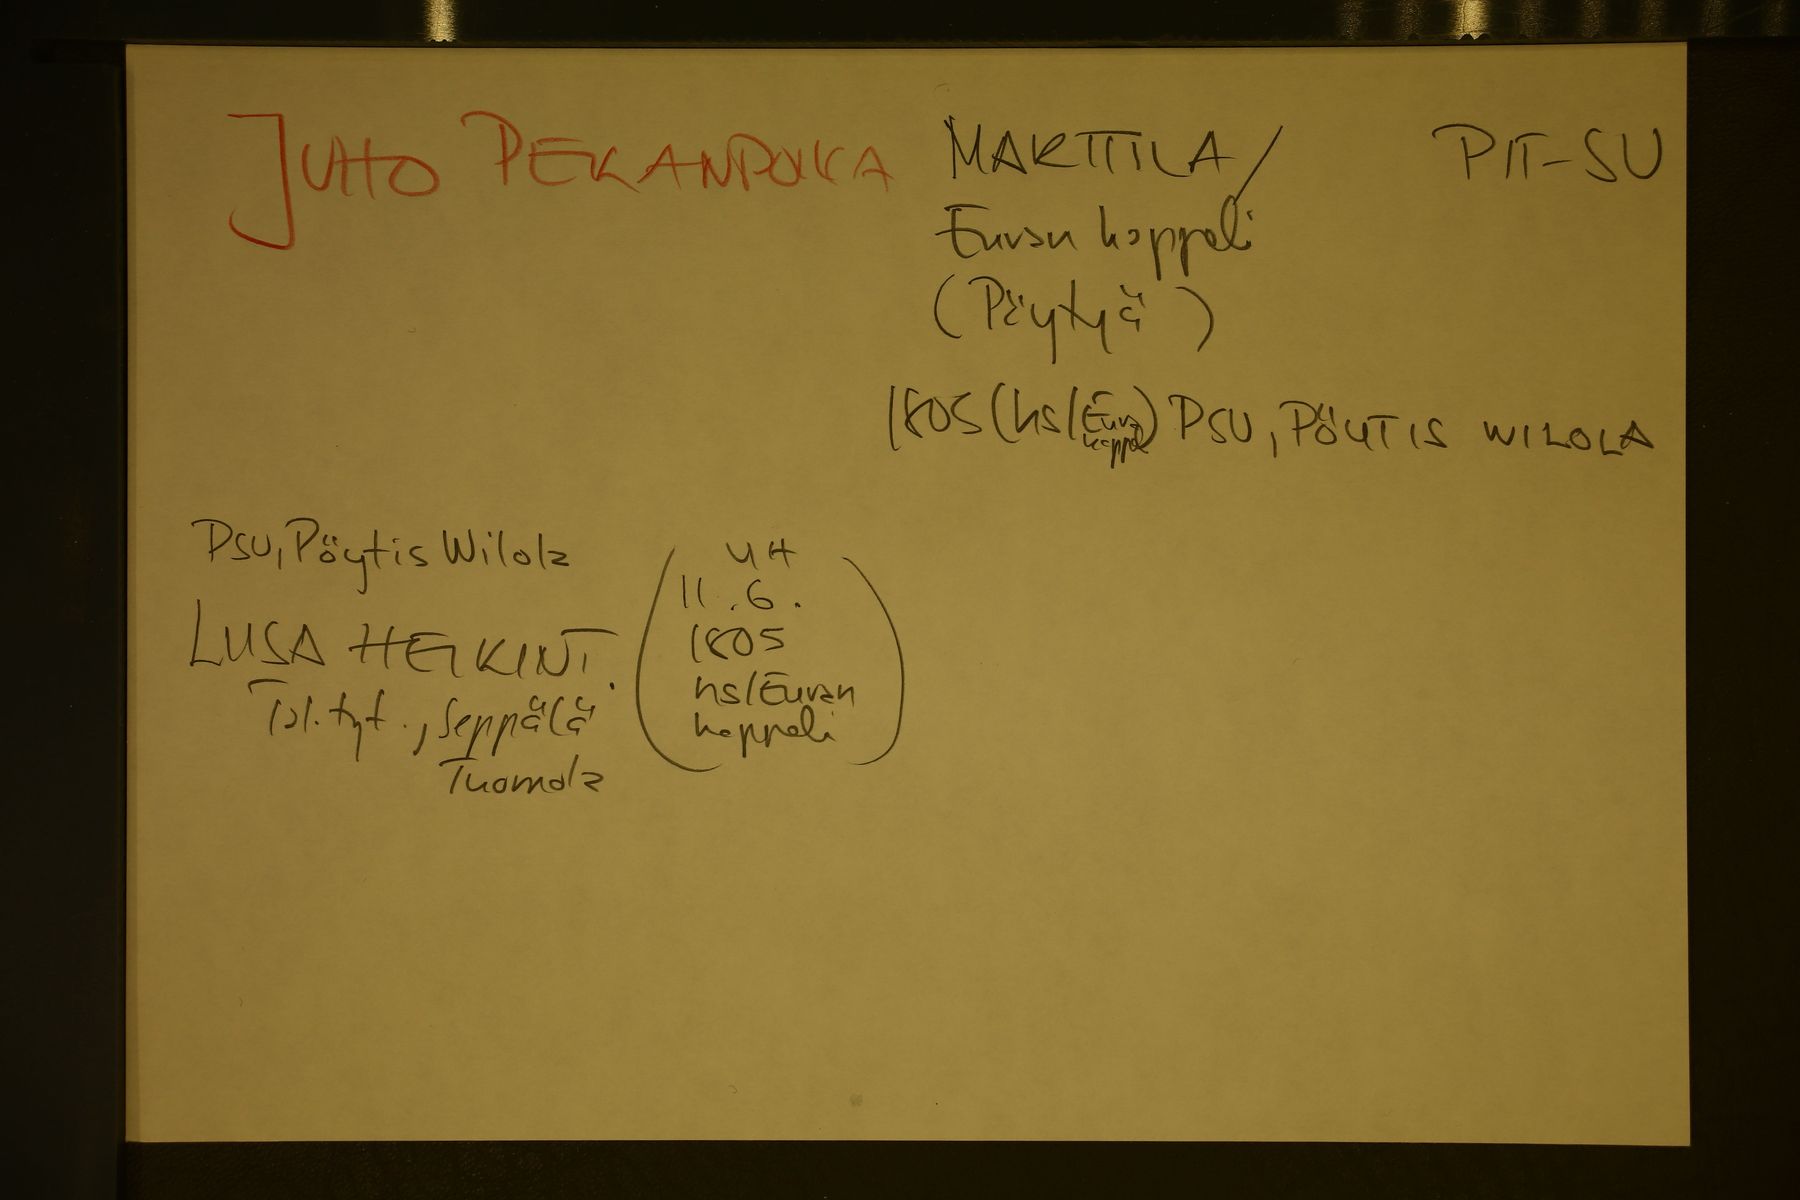 JUHO PEKANPOIKA MARTTILA / PIT-SU
Euran kappeli
(Pöytyä)
1805 (hs/Eura kappe) PSU, PÖYTIS WILOLA
PSU, Pöytis Wilola
LIISA HEIKINT.
Tal. tyt., Seppälä
Tuomola
(UH
11.6.
1805
hs/Euran
kappeli)